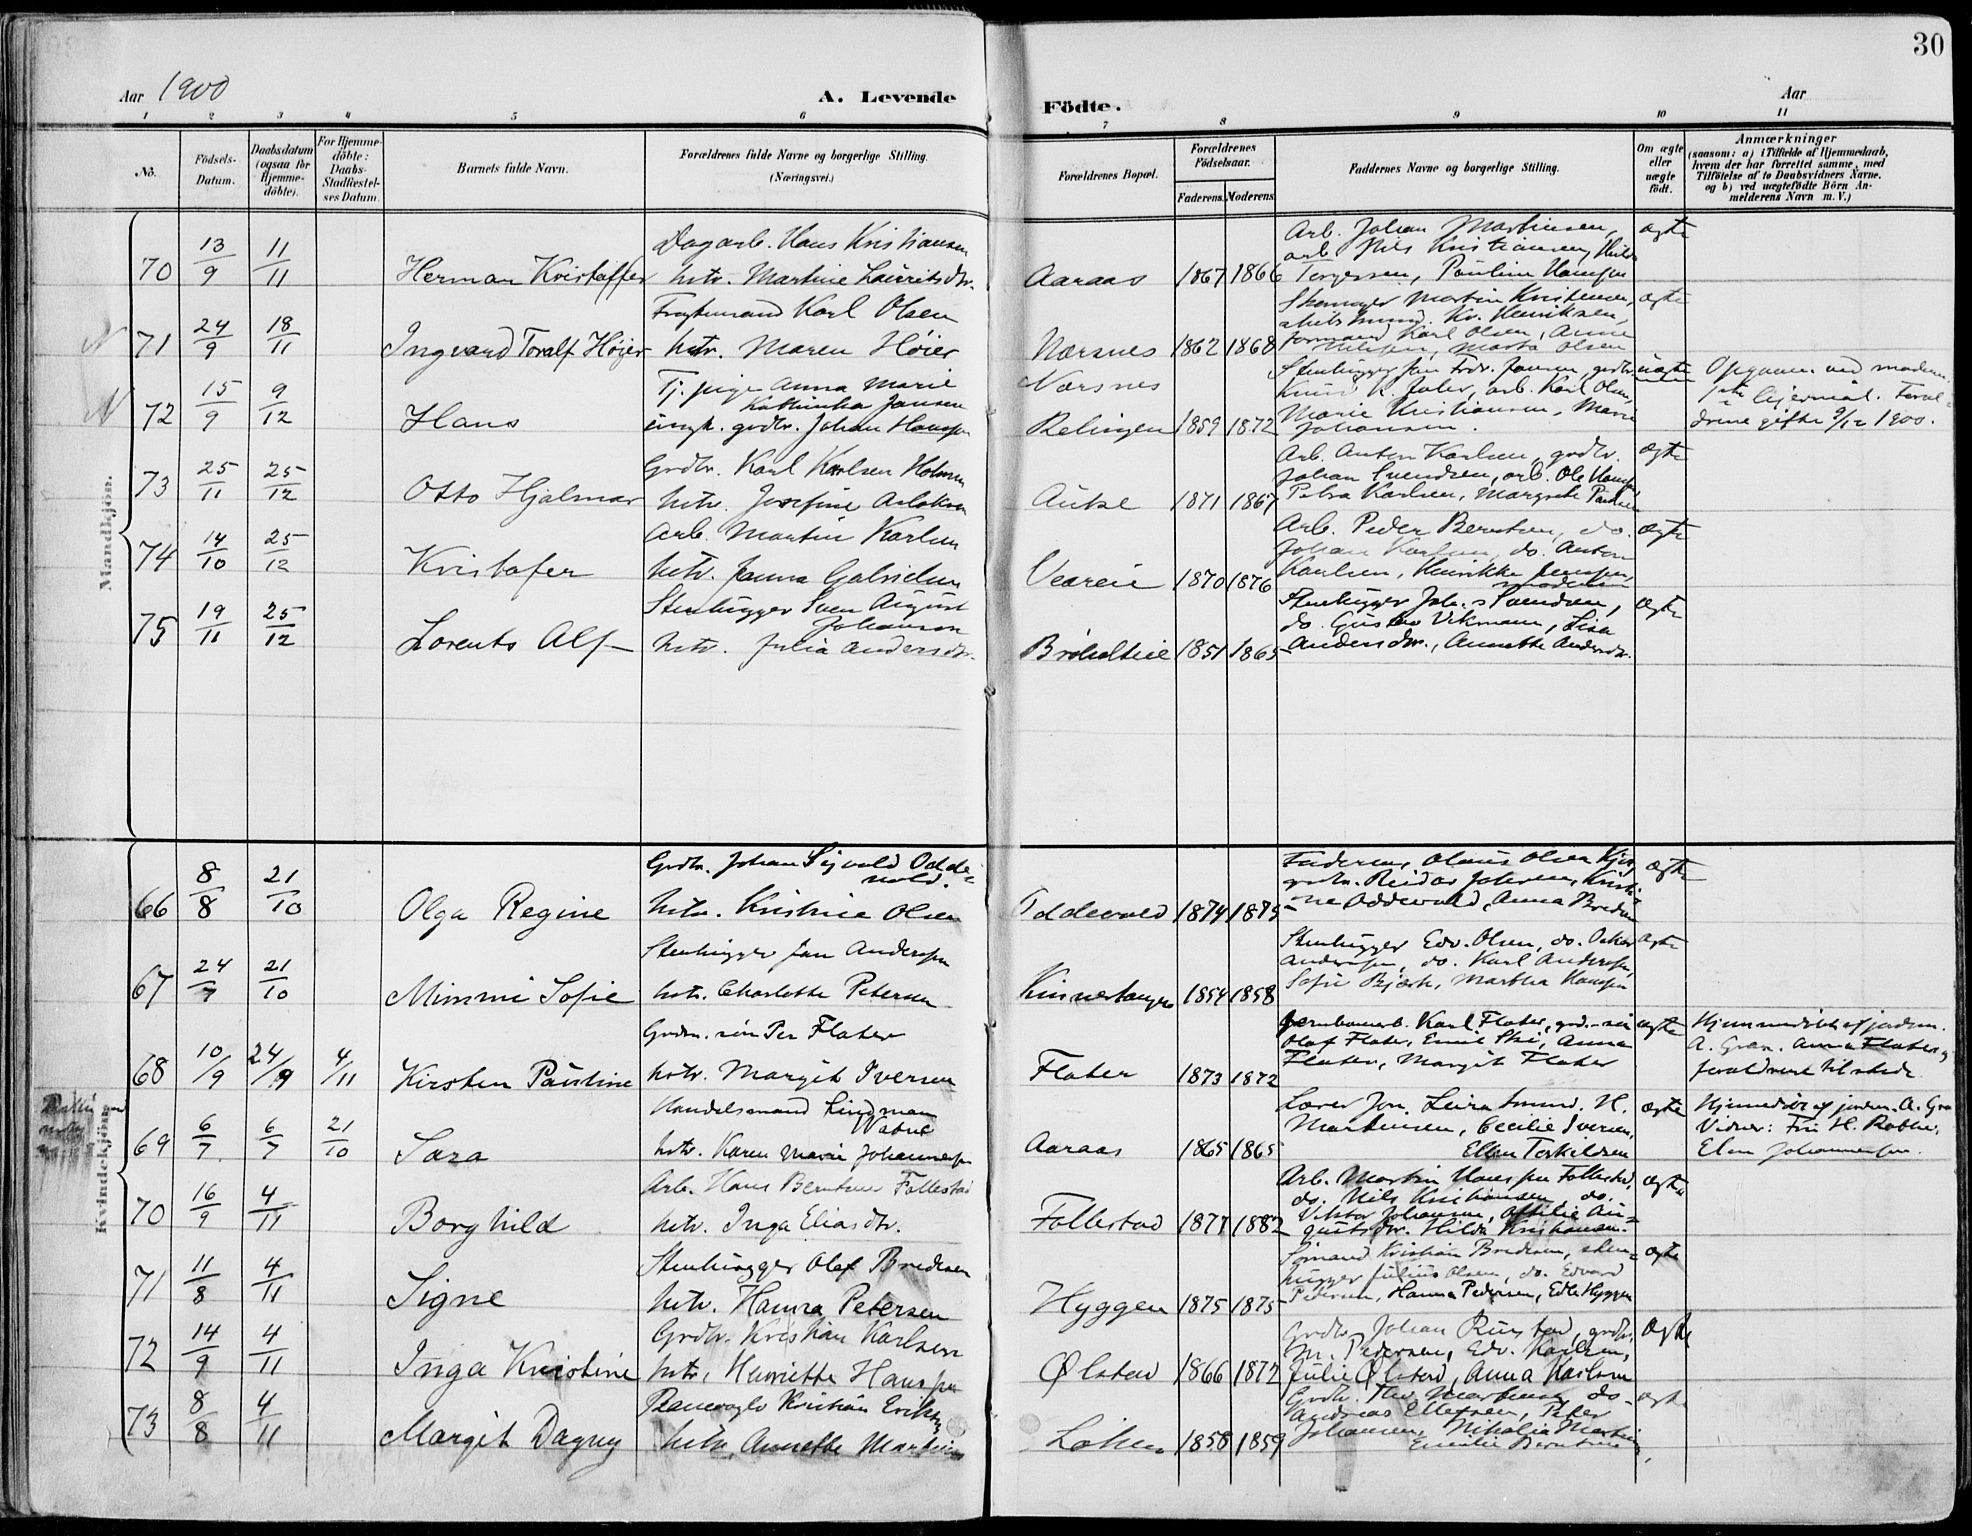 30
Aar 1900
A. Levende
Födte.
Aar
1 2 3 4 5 6 7 8 9 10 11
No.
Födsels-Datum.
Daabsdatum (ogsaa for Hjemme-döbte).
For Hjemme-döbte: Daabs-Stadfæstel-ses Datum.
Barnets fulde Navn.
Forældrenes fulde Navne og borgerlige Stilling.
(Næringsvei.)
Forældrenes Bopæl.
Forældrenes Födselsaar.
Faderens. Moderens.
Faddernes Navne og borgerlige Stilling.
Om ægte eller uægte födt.
Anmærkninger
(saasom: a) i Tilfælde af Hjemmedaab,
hvem der har forrettet samme, med
Tilföielse af to Daabsvidners Navne.
og b) ved uægtefödte Börn An-
melderens Navn m. V.)
Mandkjön.
70 13/9 11/11 Herman Kristoffer
Dagarb. Hans Kristiansen
hstr. Martine Lauritsdtr.
Aaraas 1867 1866
Arb. Johan Martinsen,
arb. Nils Kristiansen, Hilda
Torgersen, Pauline Hansen
ægte
71 24/9 18/11 Ingvard Toralf Høier
Fragtemand Karl Olsen
hstr. Maren Høier
Nærsnes 1862 1868
Skomager Martin Kristensen,
Kr. Henriksen,
formand Karl Olsen, Anne
Nilsen, Marta Olsen
ægte
72 15/9 9/12 Hans
Tj. pige Anna Marie
Kathinka Jansen
ungk. grdbr. Johan Hansen
Nærsnes
Relingen 1859 1872
Stenhugger Jan Fredr. Jansen, grdbr.
Knud K. arb. Karl Olsen,
Marie Kristiansen, Marie
Johansen.
uægte
Opgaven ved moderen
lejermål. Foræl-
drene gifte 9/12 1900.
73 25/11 25/12 Otto Hjalmar
Grdbr. Karl Karlsen Holmen
hstr. Josefine
1871 1867
Arb. Anton Karlsen, grdbr.
Johan Svendsen, arb. Ole Hansen
Petra Karlsen, Margrete
ægte
74 14/10 25/12 Kristofer
Arb. Martin Karlsen
hstr. Janna Gabrielsen
1870 1876
Arb. Peder Berntsen, do.
Johan Karlsen, do. Anton
Karlsen, Henrikke Jensen,
moderen
ægte
75 19/11 25/12 Lorents Alf
Stenhugger Sven August
Johanson
hstr. Julia Andersdtr.
1851 1865
Stenhugger Joh. Svendsen,
do. Gustav Vikmann, Lisa
Andersdtr., Annette Andersdtr.
ægte
Kvindekjön.
66 8/8 21/10 Olga Regine
Grdbr. Johan Sigvald Odde-
vald.
hstr. Kristine Olsen
Oddevald 1874 1875
Faderen, Olaus Olsen
grdbr. Reidar Johnsen, Kristi-
ne Oddevald, Anna Bredesen
ægte
67 24/7 21/10 Mimmi Sofie
Stenhugger Jan Andersen
hstr. Charlotte Petersen
Kinnertangen 1854 1858
Stenhugger Edv. Olsen, do. Oskar
Andersen, do. Karl Andersen,
Sofie Martha Hansen
ægte
68 10/9 24/9 4/11 Kirsten Paustine
Grdm. søn Per Flater
hstr. Margit Iversen
Flater 1873 1872
Jernbanearb. Karl Flater, grd.-søn
Olaf Flater, Emil Ski, Anna
Flater, Margit Flater
ægte
Hjemmedøbt af jordm.
A. Gran. Anna Flater og
forældrene tilstede
69 6/7 6/7 21/10 Sara
Handelsmand Lindman
Watne
hstr. Karen Marie Johannesen
Aaraas 1865 1865
Lærer Jon. H.
Martinsen, Cecilie Iversen,
Ellen Torkildsen
ægte
Hjemmedøbt af jordm. A. Gran
Vidner: H.
Johannesen.
70 16/9 4/11 Borghild
Arb. Hans Berntsen Follestad
hstr. Inga Eliasdtr.
Follestad 1877 1882
Arb. Martin Hansen Follestad,
do. Nils Kristiansen, do.
Viktor Johansen, Ottilie Au-
gustsdtr. Hilda Kristiansen.
ægte
71 11/8 4/11 Signe
Stenhugger Olaf Bredesen
hstr. Hanna Petersen
Hyggen 1875 1875
Sømand Kristian Bredesen, sten-
hugger Julius Olsen, do. Edvard
Pedersen, Hanna Pedersen, Edle Hyggen
ægte
72 14/9 4/11 Inga Kristine
Grdbr. Kristian Karlsen
hstr. Henriette Hansen
Ølstad 1866 1872
Grdbr. Johan Rustad, grdbr.
M. Pedersen, Edv. Karlsen,
Julie Ølstad, Anna Karlsen
ægte
73 8/8 4/11 Margit Dagny
Kristian Eriksen
hstr. Annette Martinsen
1858 1859
Grdbr. Martinsen, do.
Andreas Ellefsen, Peter
Johansen, Nikolia Martinsen,
Emilie Berntsen
ægte